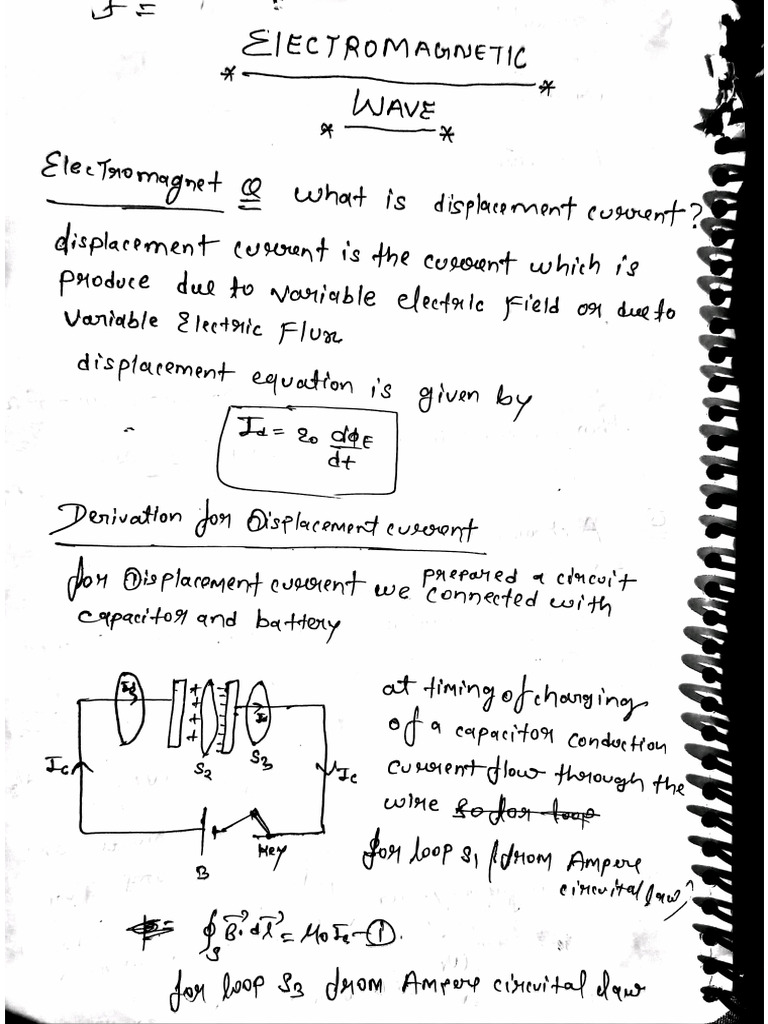 ElECTROMAGNETIC
WAVE
Electromagnet Q What is displacement current?
displacement current is the current which is
produce due to variable electric field or due to
Variable Electric Flux
displacement equation is given by
Id = ε0 dφE
dt
Derivation for Displacement current
for Displacement current we prepared a circuit
connected with
capacitor and battery
at timing of charging
of a capacitor conduction
current flow through the
wire so for loop
for loop S1 from Ampere
circuital law,
+ + + +
S2
S3
Ic
Ic
B
Key
∮S B⃗.dl⃗ = μ0Ic - ①.
for loop S3 from Ampere circuital law